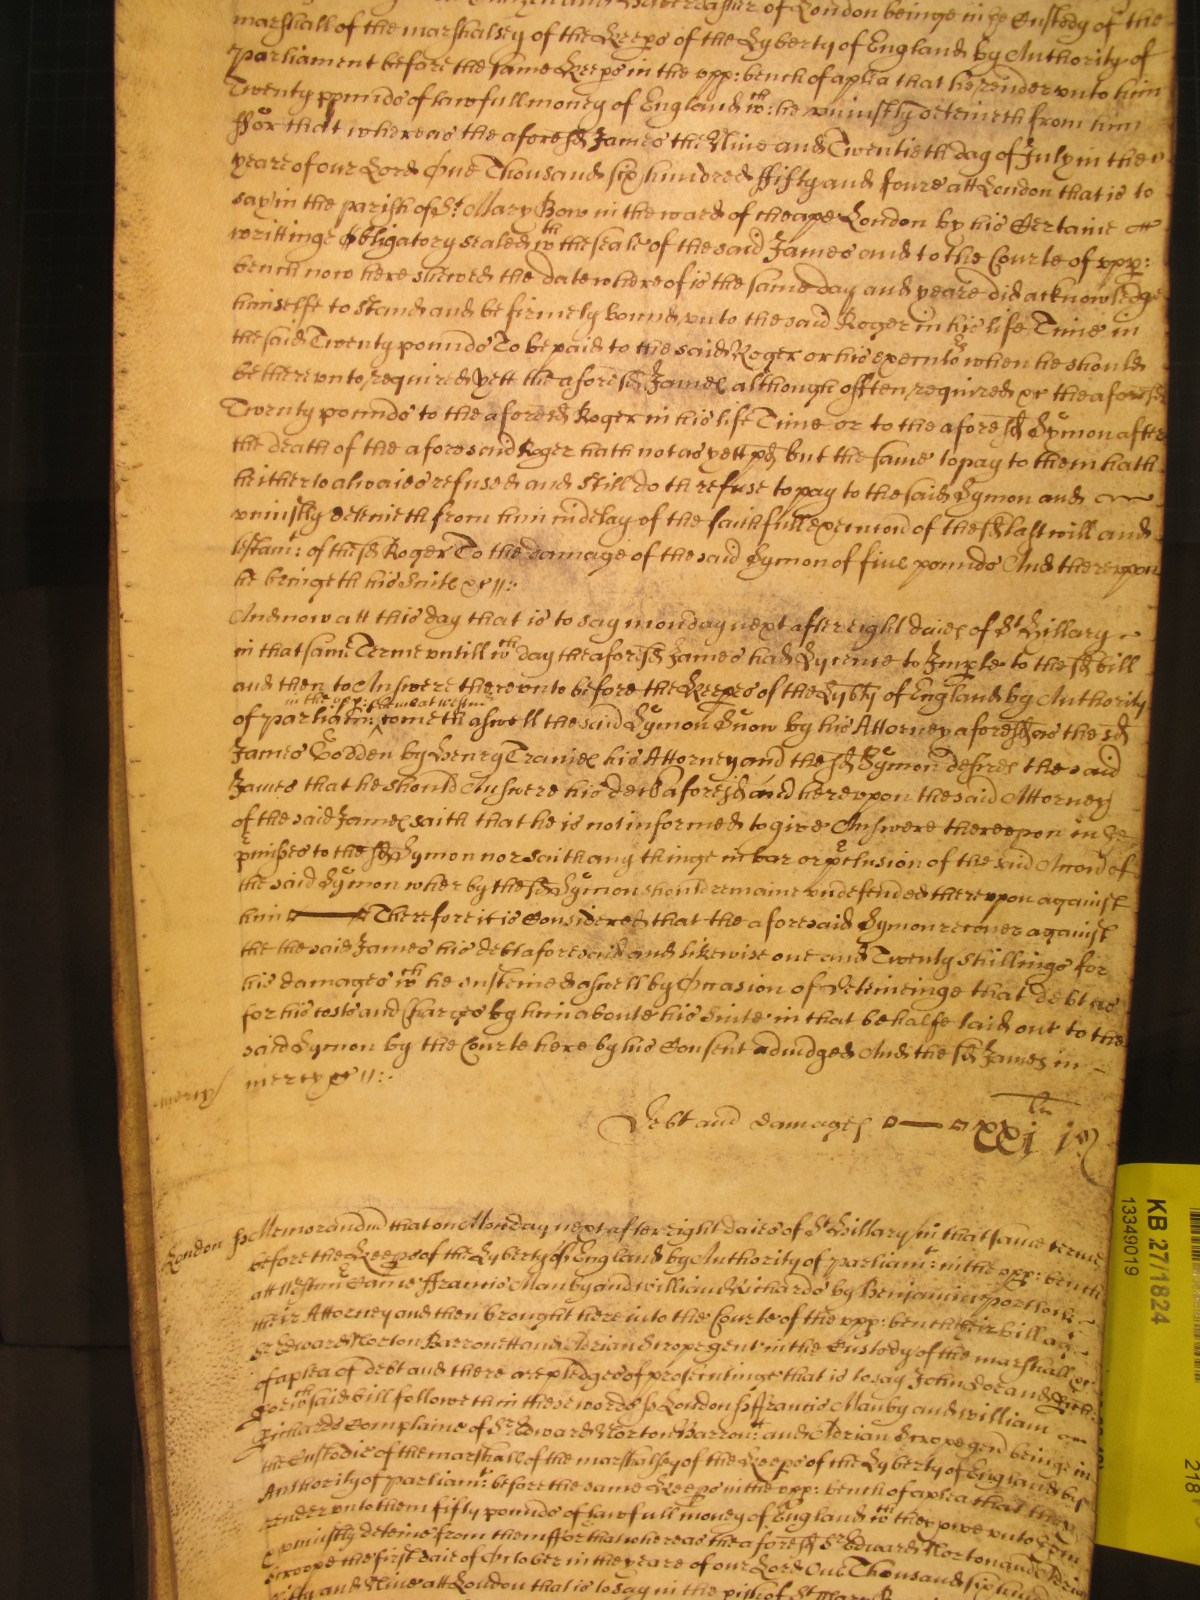 Citizen and Haberdasher of London beinge in ye Custody of the
marshall of the marshalsey of the Keeps of the Lyberty of England by Authority of
Parliament before the same Keeps in the vpp: bench of a plea that he render vnto him
Twenty pounds of lawfull money of England wch: he vniustly deteineth from him
ffor that whereas the aforesd James the Nine and Twentieth day of July in the
yeare of our Lord One Thousand six hundred ffifty and foure att London that is to
say in the parish of St. Mary Bow in the ward of cheape London by his Certaine
writtinge Obligatory sealed wth the seale of the said James and to the Courte of vpp:
bench now here shewed the date whereof is the same day and yeare did acknowledge
himselfe to stand and be firmely bound vnto the said Roger in his life Time in
the said Twenty pounds To be paid to the said Roger or his executors when he should
be therevnto required yett the aforesd James although often required &c the aforesd
Twenty pounds to the aforesd Roger in his life Time or to the aforesd Symon after
the death of the aforesaid Roger hath not as yett pd but the same to pay to them hath
heitherto alwaies refused and still doth refuse to pay to the said Symon and
vniustly deteineth from him in delay of the faithfull execution of the sd last will and
testamt: of the sd Roger To the damage of the said Symon of five pounds And therevpon
he bringeth his Suite &c //:
And now att this day that is to say monday next after eight daies of St Hillary
in that same Terme vntill wch day the aforesd James had Lycence to Imple to the sd bill
and then to Answere therevnto before the Keeps of the Lybty of England by Authority
in the vpp: bench at westm
of parliam: cometh aswell the said Symon Snow by his Attorney aforesd as the sd
James Godden by Henry Traniel his Attorney and the sd Symon desires the said
James that he should Answere his debt aforesd and herevpon the said Attorney
of the said James saith that he is not informed to give Answere therevpon in ye
pmisses to the sd Symon nor saith any thinge in bar or pclusion of the said Accon of
the said Symon wherby the sd Symon should remaine vndefended therevpon against
him Therefore it is Considered that the aforesaid Symon recover against
the the said James his debt aforesaid and likewise one and Twenty shillings for
his damages wch he susteined aswell by Occasion of deteineinge that debt as
for his costs and Charges by him aboute his Suite in that behalfe laid out to the
said Symon by the Courte here by his Consent adiudged And the sd James in
mercy &c //:
mercy
Debt and damages xxj li js
London ss Memorandum that on Monday next after eight daies of St Hillary in that same terme
before the Keeps of the Lyberty of England by Authority of parliamt: in the vpp: bench
att Westmr Came Francis Mauby and William Richards by Benjamin
their Attorney and then brought here into the Courte of the vpp: bench their bill agt
Sr Edward Norton Barronett and Adrian Scrope gent in the Custody of the marshall &c
of a plea of debt and there are pledges of prosecutinge that is to say John Doe and Rich:
Roe wch said bill followeth in these words ss London ss Francis Mauby and William
Richards Complaine of Sr Edward Norton Barrontt: and Adrian Scrope gen beinge in
the Custodie of the marshall of the marshalsey of the Keeps of the Lyberty of England by
Authority of parliamt: before the same Keeps in the vpp: bench of a plea that they
render vnto them fifty pounds of lawfull money of England wch they owe vnto them
& vniustly deteine from them ffor that whereas the aforesd Sr Edward Norton and Adrian
Scrope the first daie of October in the yeare of our Lord One Thousand six hundred
fifty and Nine att London that is to say in the pish of St Mary Bow
KB 27/1824
13349019